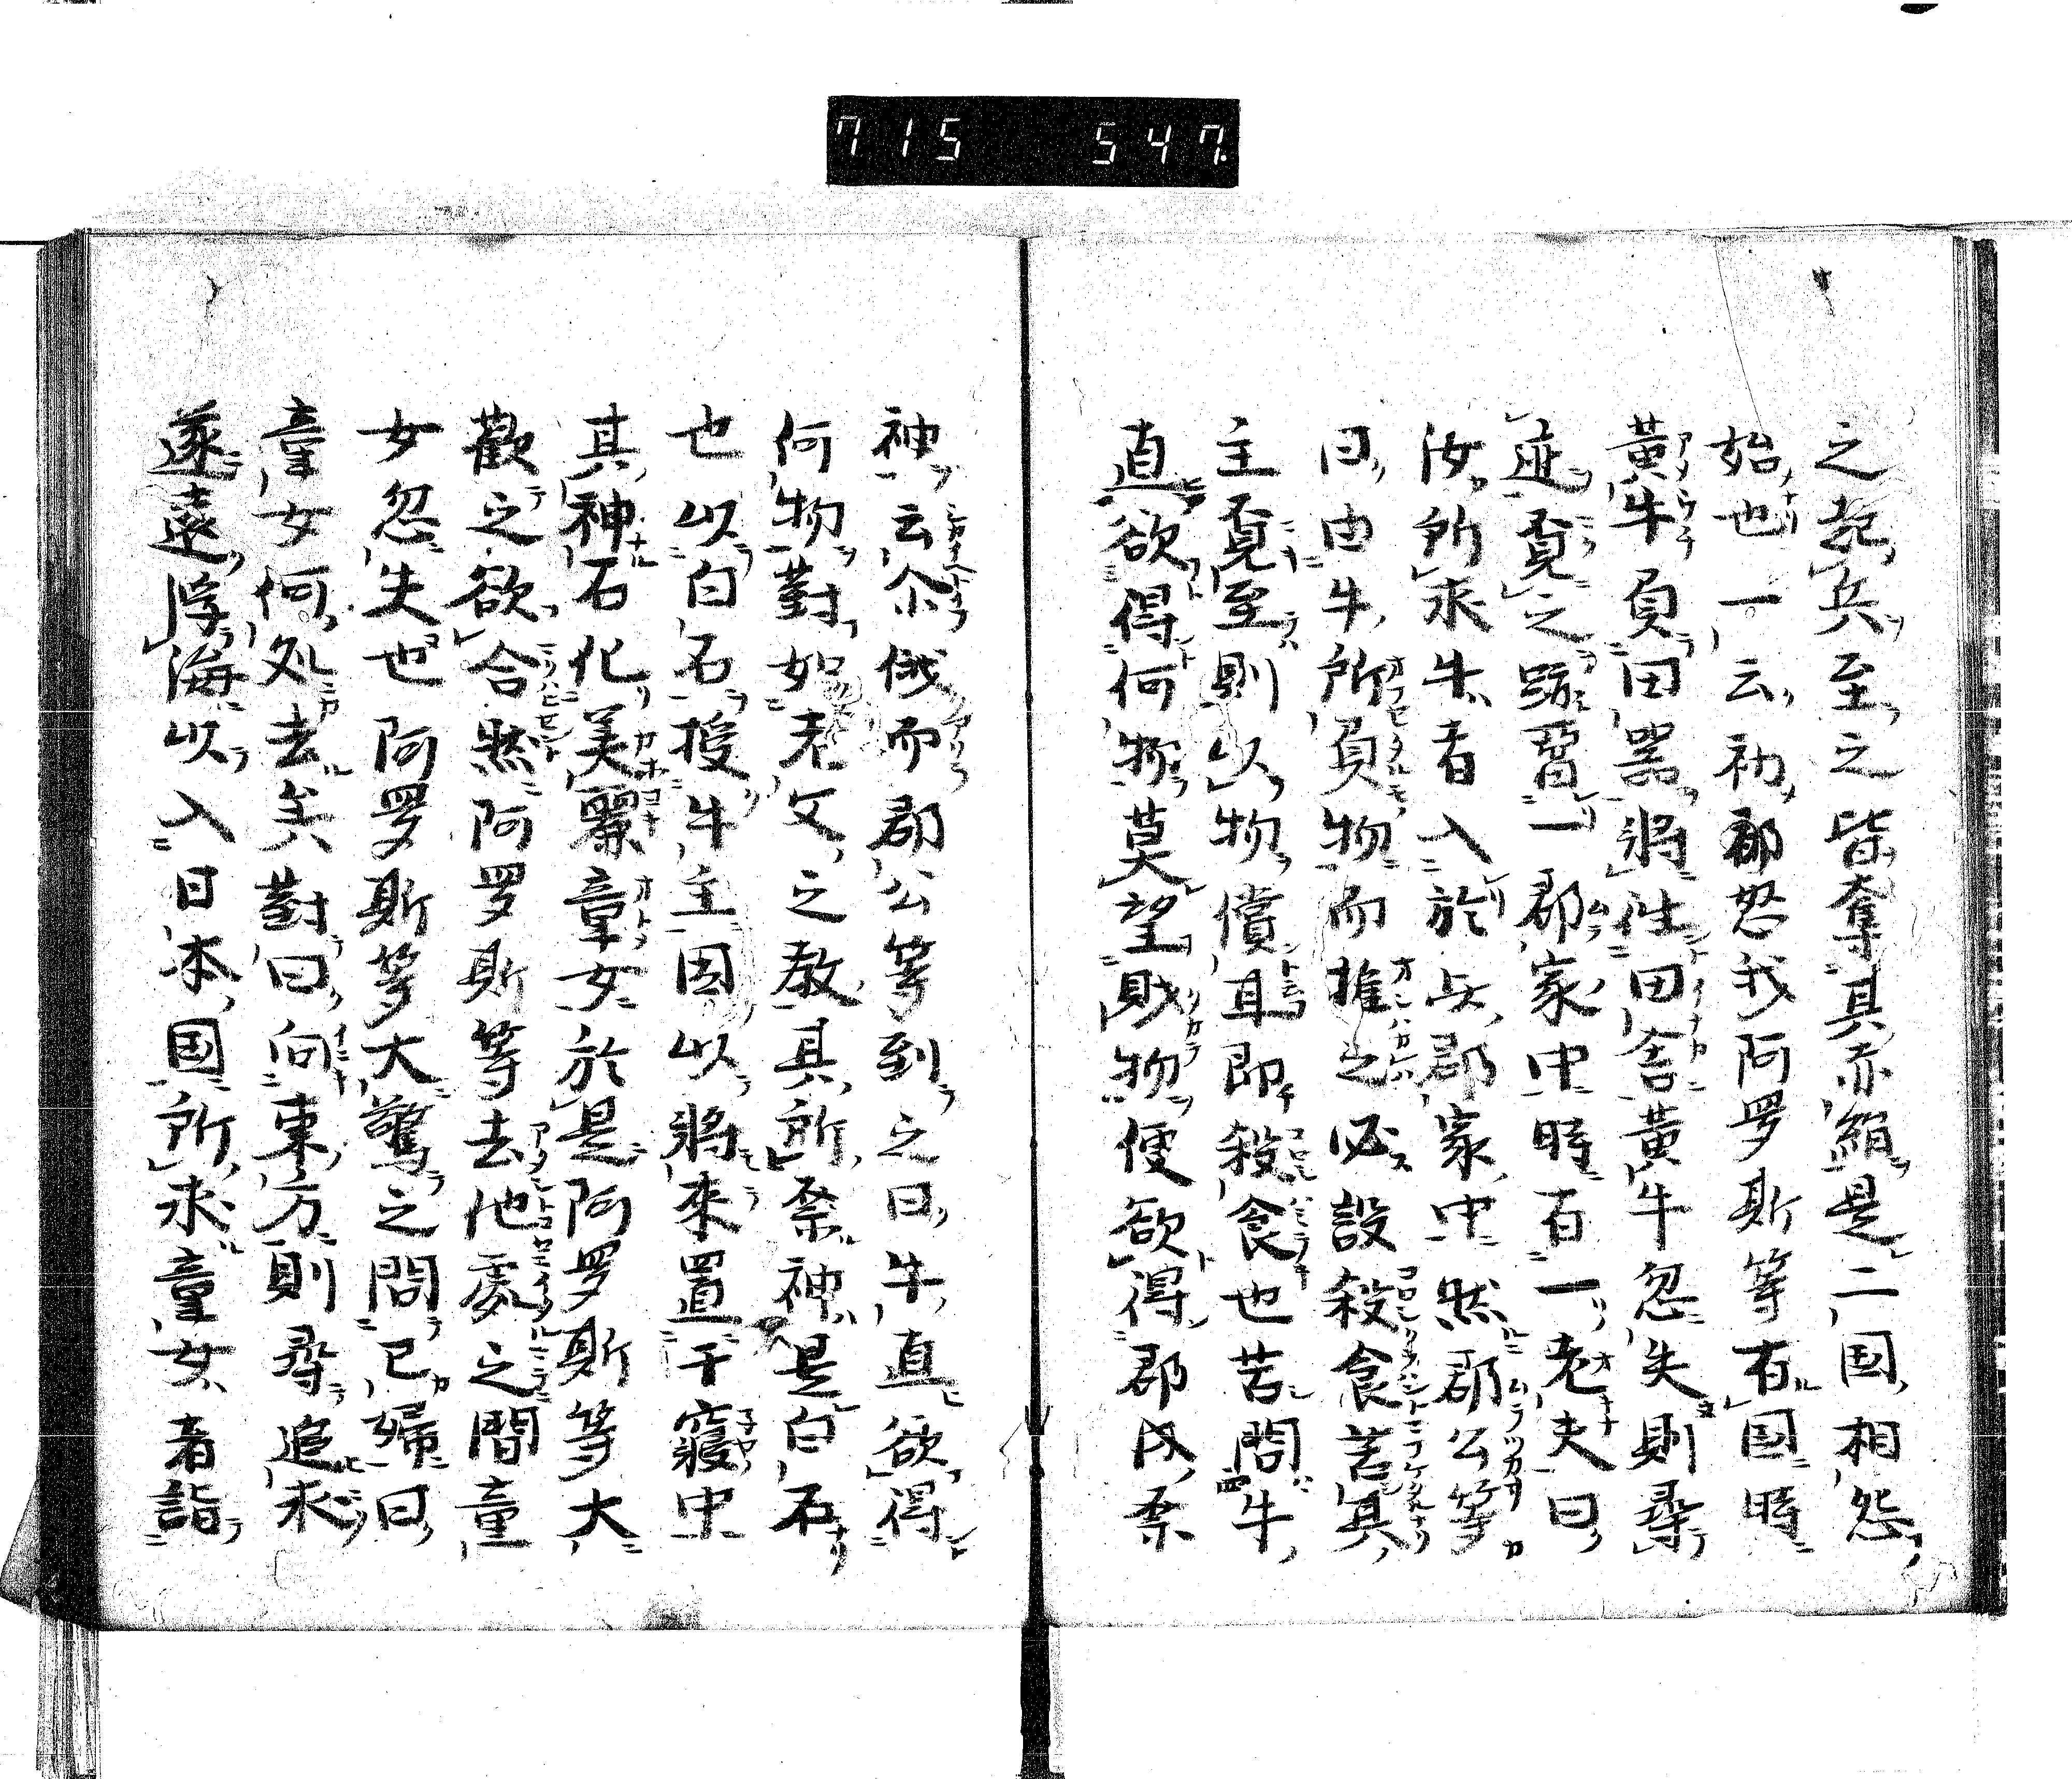 715 547
之起兵至之皆奪其赤絹是二国相怨
始也一云初都怒我阿罗斯等有国時
黃牛負田器將往田舍黃牛忽失則尋
迹覓之跡畱一郡家中時有一老夫曰
汝所求牛者入於此郡家中然郡公等
曰由牛所負物而推之必設殺食苦其
主覓至則以物償耳即殺食也苦問牛
直欲得何物莫望財物便欲得郡内祭
神云尒俄而郡公等到之曰牛直欲得
何物對如老父之教其所祭神是白石
也以白石授牛主因以將來置于寢中
其神石化美麗童女於是阿罗斯等大
歡之欲合然阿罗斯等去他處之間童
女忽失也阿罗斯等大驚之問已婦曰
童女何処去矣對曰向東方則尋追求
遂遠浮海以入日本国所求童女者詣